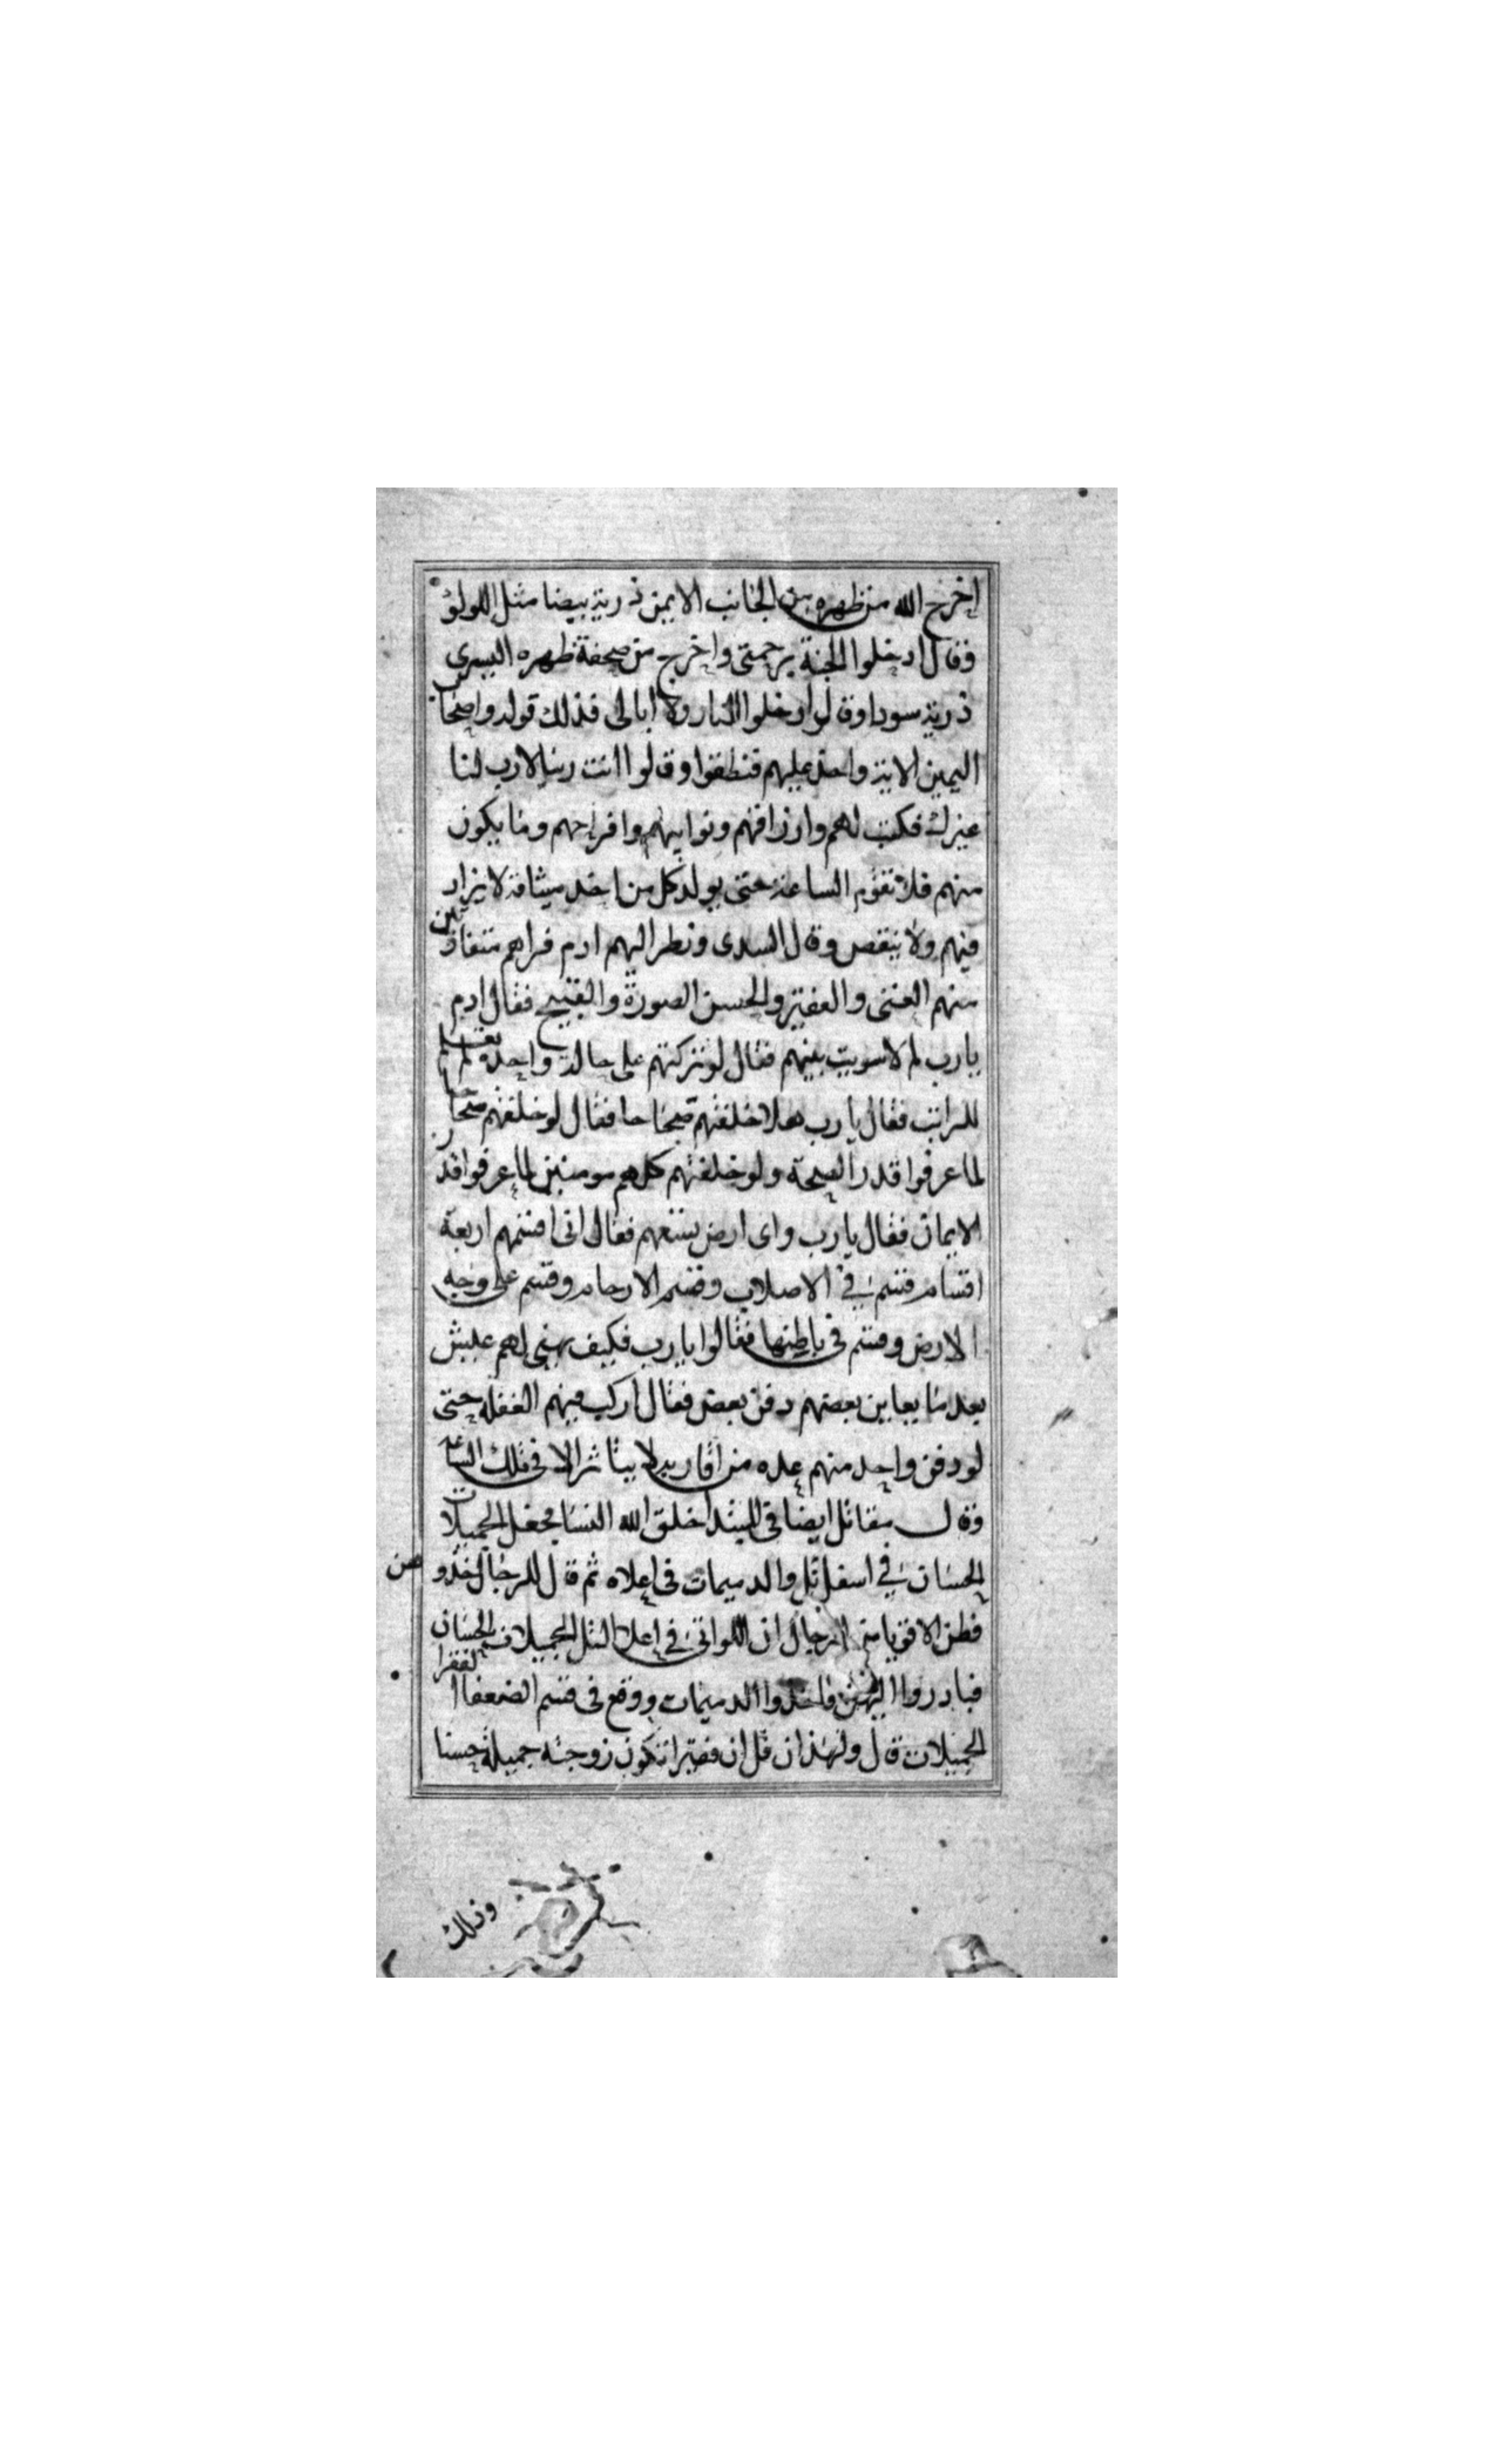 اخرج الله من ظهره من الجانب الايمن ذرية بيضا مثل اللولؤ
وقال ادخلوا الجنة برحمتى واخرج من صحفة ظهره اليسرى
ذرية سودا وقال ادخلوا النار ولا ابالى فذلك قوله واصحاب
اليمين الاية واخذ عليهم فنطقوا وقالوا انت ربنا لا رب لنا
غيرك فكتب لهم وارزاقهم ونوايبهم وافراحهم وما يكون
منهم فلا تقوم الساعة حتى يولد كل من اخذ ميثاقه لا يزاد
فيهم ولا ينقص وقال السدى ونظر اليهم ادم فراهم متفاوتين
منهم الغنى والفقير والحسن الصورة والقبيح فقال ادم
يارب لم لا سويت بينهم فقال لو تركتهم على حالة واحدة لم
للراتب فقال يا رب هلا خلقتهم صحاحا فقال لو خلقتهم صحاحا
لما عرفوا قدر الصحة ولو خلقتهم كلهم مومنين لما عرفوا قدر
الايمان فقال يا رب واى ارض يسعهم فقال انى اقسمهم اربعة
اقسام قسم في الاصلاب وقسم الارحام وقسم على وجه
الارض وقسم فى باطنها فقالوا يا رب فكيف يهنى لهم عليش
بعد ما يعاين بعضهم دفن بعض فقال اركب فيهم الغفلة حتى
لو دفن واحد منهم عده من اقاربه لا يتاثر الا فى تلك الساعة
وقال مقاتل ايضا فى المبتدا خلق الله النسا فجعل الجميلات
الحسان في اسفل تل والدميمات فى اعلاه ثم قال للرجال خذوهن
فظن الاقويا من الرجال ان اللواتى في اعلا التل الجميلات الحسان
فبادروا اليهن واخذوا الدميمات ووقع فى قسم الضعفا الفقرا
الجميلات قال ولهذا ان قل ان فقيرا تكون زوجته جميلة حسنا
وذلك